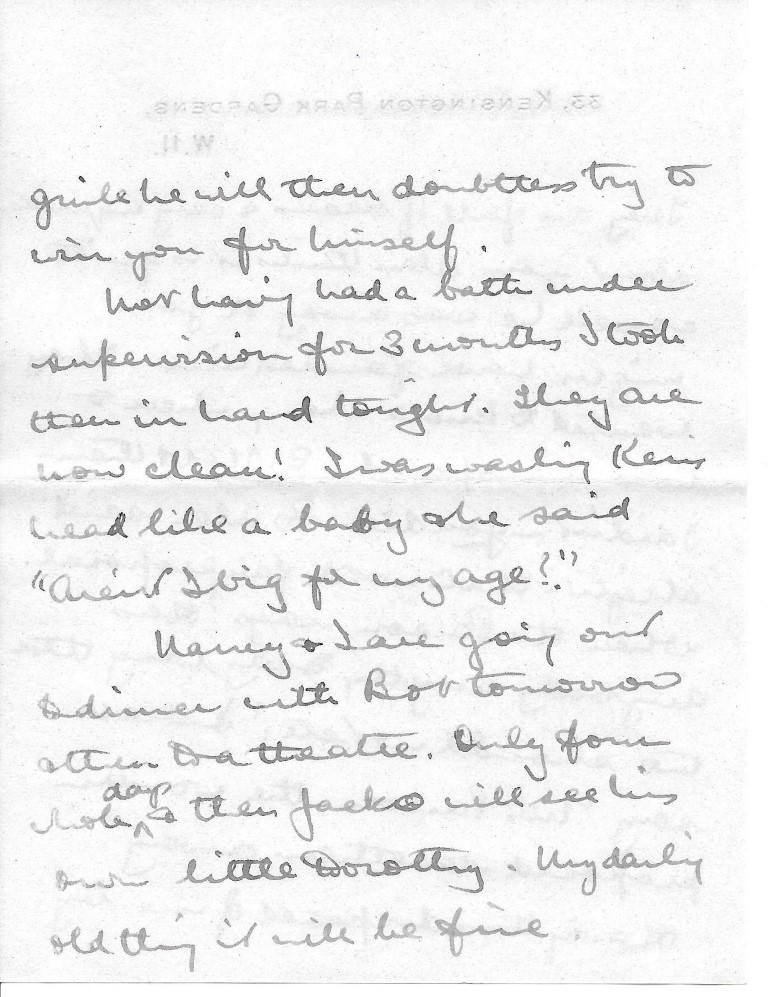 33, KENSINGTON PARK GARDENS,
W.11.
guile he will then doubtless try to
win you for himself.
Not having had a bath under
supervision for 3 months I took
them in hand tonight. They are
now clean! I was washing Kens
head like a baby & he said
"Aren't I big for my age?"
Nancy & I are going out
to dinner with Bob tomorrow
& then to a theatre. Only four
days
more & then Jack will see his
own little Dorothy. My darling
old thing it will be fine.